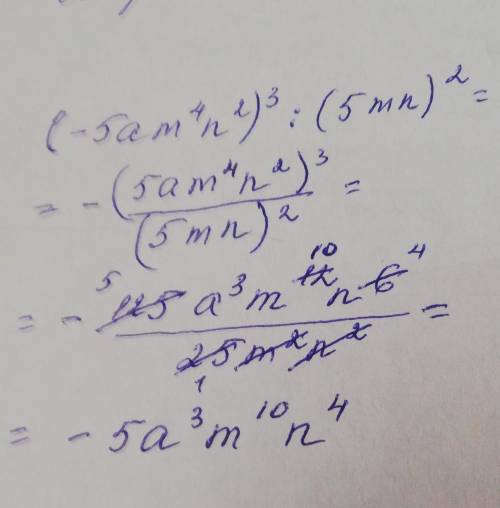 (-5am⁴n²)³ : (5mn)² =
= - (5am⁴n²)³ / (5mn)² =
= - 5 125 a³ m 10 12 n 6 4 / 25 m² n² 1 =
= - 5a³m¹⁰n⁴